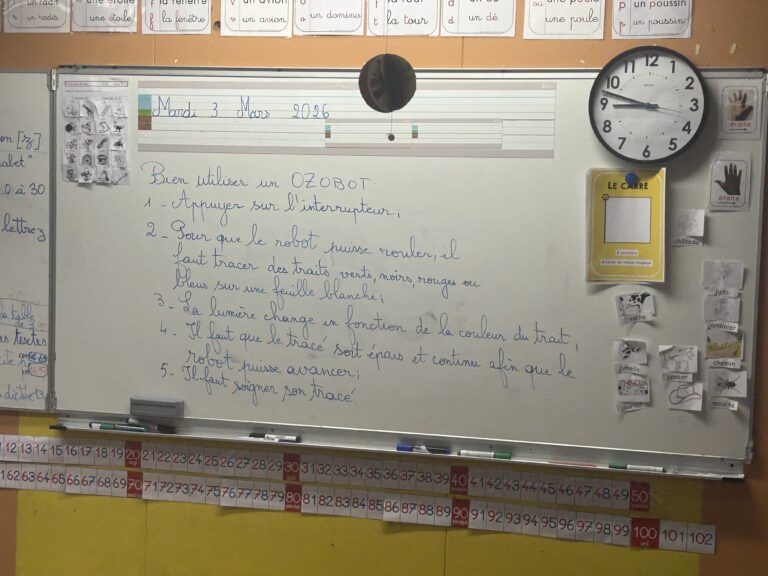 un radis
un radis
une étoile
une étoile
la fenêtre
f la fenêtre
un avion
v un avion
un domino
o un domino
la tour
t la tour
un dé
d un dé
une poule
une poule
p un poussin
p un poussin
on [z]
abet"
0 à 30
lettre z
la table
textes
Mardi 3 Mars 2026
Bien utiliser un OZOBOT
1 - Appuyer sur l'interrupteur;
2 - Pour que le robot puisse rouler, il
faut tracer des traits verts, noirs, rouges ou
bleus sur une feuille blanche;
3 - La lumière change en fonction de la couleur du trait;
4 - Il faut que le tracé soit épais et continu afin que le
robot puisse avancer;
5 - Il faut soigner son tracé.
12 1 2 3 4 5 6 7 8 9 10 11
LE CARRÉ
4 sommets
4 côtés de même longueur
droite
droite
château
vache
judo
jardinier
jumelle
jument
chemin
journal
mouche
12 13 14 15 16 17 18 19 20 21 22 23 24 25 26 27 28 29 30 31 32 33 34 35 36 37 38 39 40 41 42 43 44 45 46 47 48 49 50
62 63 64 65 66 67 68 69 70 71 72 73 74 75 76 77 78 79 80 81 82 83 84 85 86 87 88 89 90 91 92 93 94 95 96 97 98 99 100 101 102